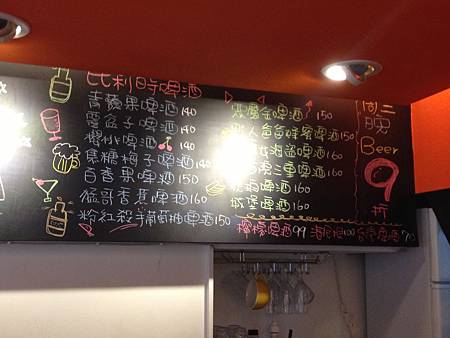 比利時啤酒
青蘋果啤酒140
覆盆子啤酒140
櫻桃啤酒140
焦糖梅子啤酒140
百香果啤酒150
猛哥香蕉啤酒160
粉紅殺手葡萄柚啤酒150
惡魔金啤酒150
人 蜂蜜啤酒150
啤酒160
三麥啤酒160
啤酒160
城堡啤酒160
檸檬啤酒99 海尼根100 台灣啤酒70
周三
晚
Beer
9
折